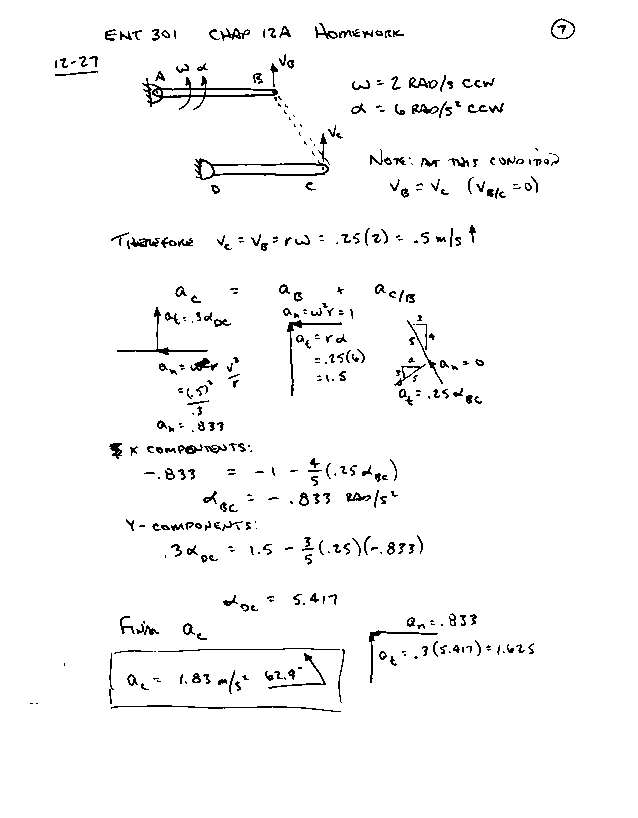 ENT 301 CHAP 12A HOMEWORK 7
12-27
ω α
A B V_B
ω = 2 RAD/S CCW
α = 6 RAD/S² CCW
V_C
D C
NOTE: AT THIS CONDITION
V_B = V_C (V_B/C = 0)
THEREFORE V_C = V_B = rω = .25(2) = .5 m/s ↑
a_C = a_B + a_C/B
a_t = .3α_DC
a_n = ω²r = 1
a_t = rα
= .25(6)
= 1.5
3
5 4
4
3 5
a_n = 0
a_t = .25 α_BC
a_n = v²/r
= (.5)²/.3
a_n = .833
X COMPONENTS:
-.833 = -1 - 4/5 (.25 α_BC)
α_BC = -.833 RAD/S²
Y-COMPONENTS:
.3α_DC = 1.5 - 3/5 (.25)(-.833)
α_DC = 5.417
FIND a_C
a_n = .833
a_t = .3(5.417) = 1.625
a_C = 1.83 m/s² 62.9°